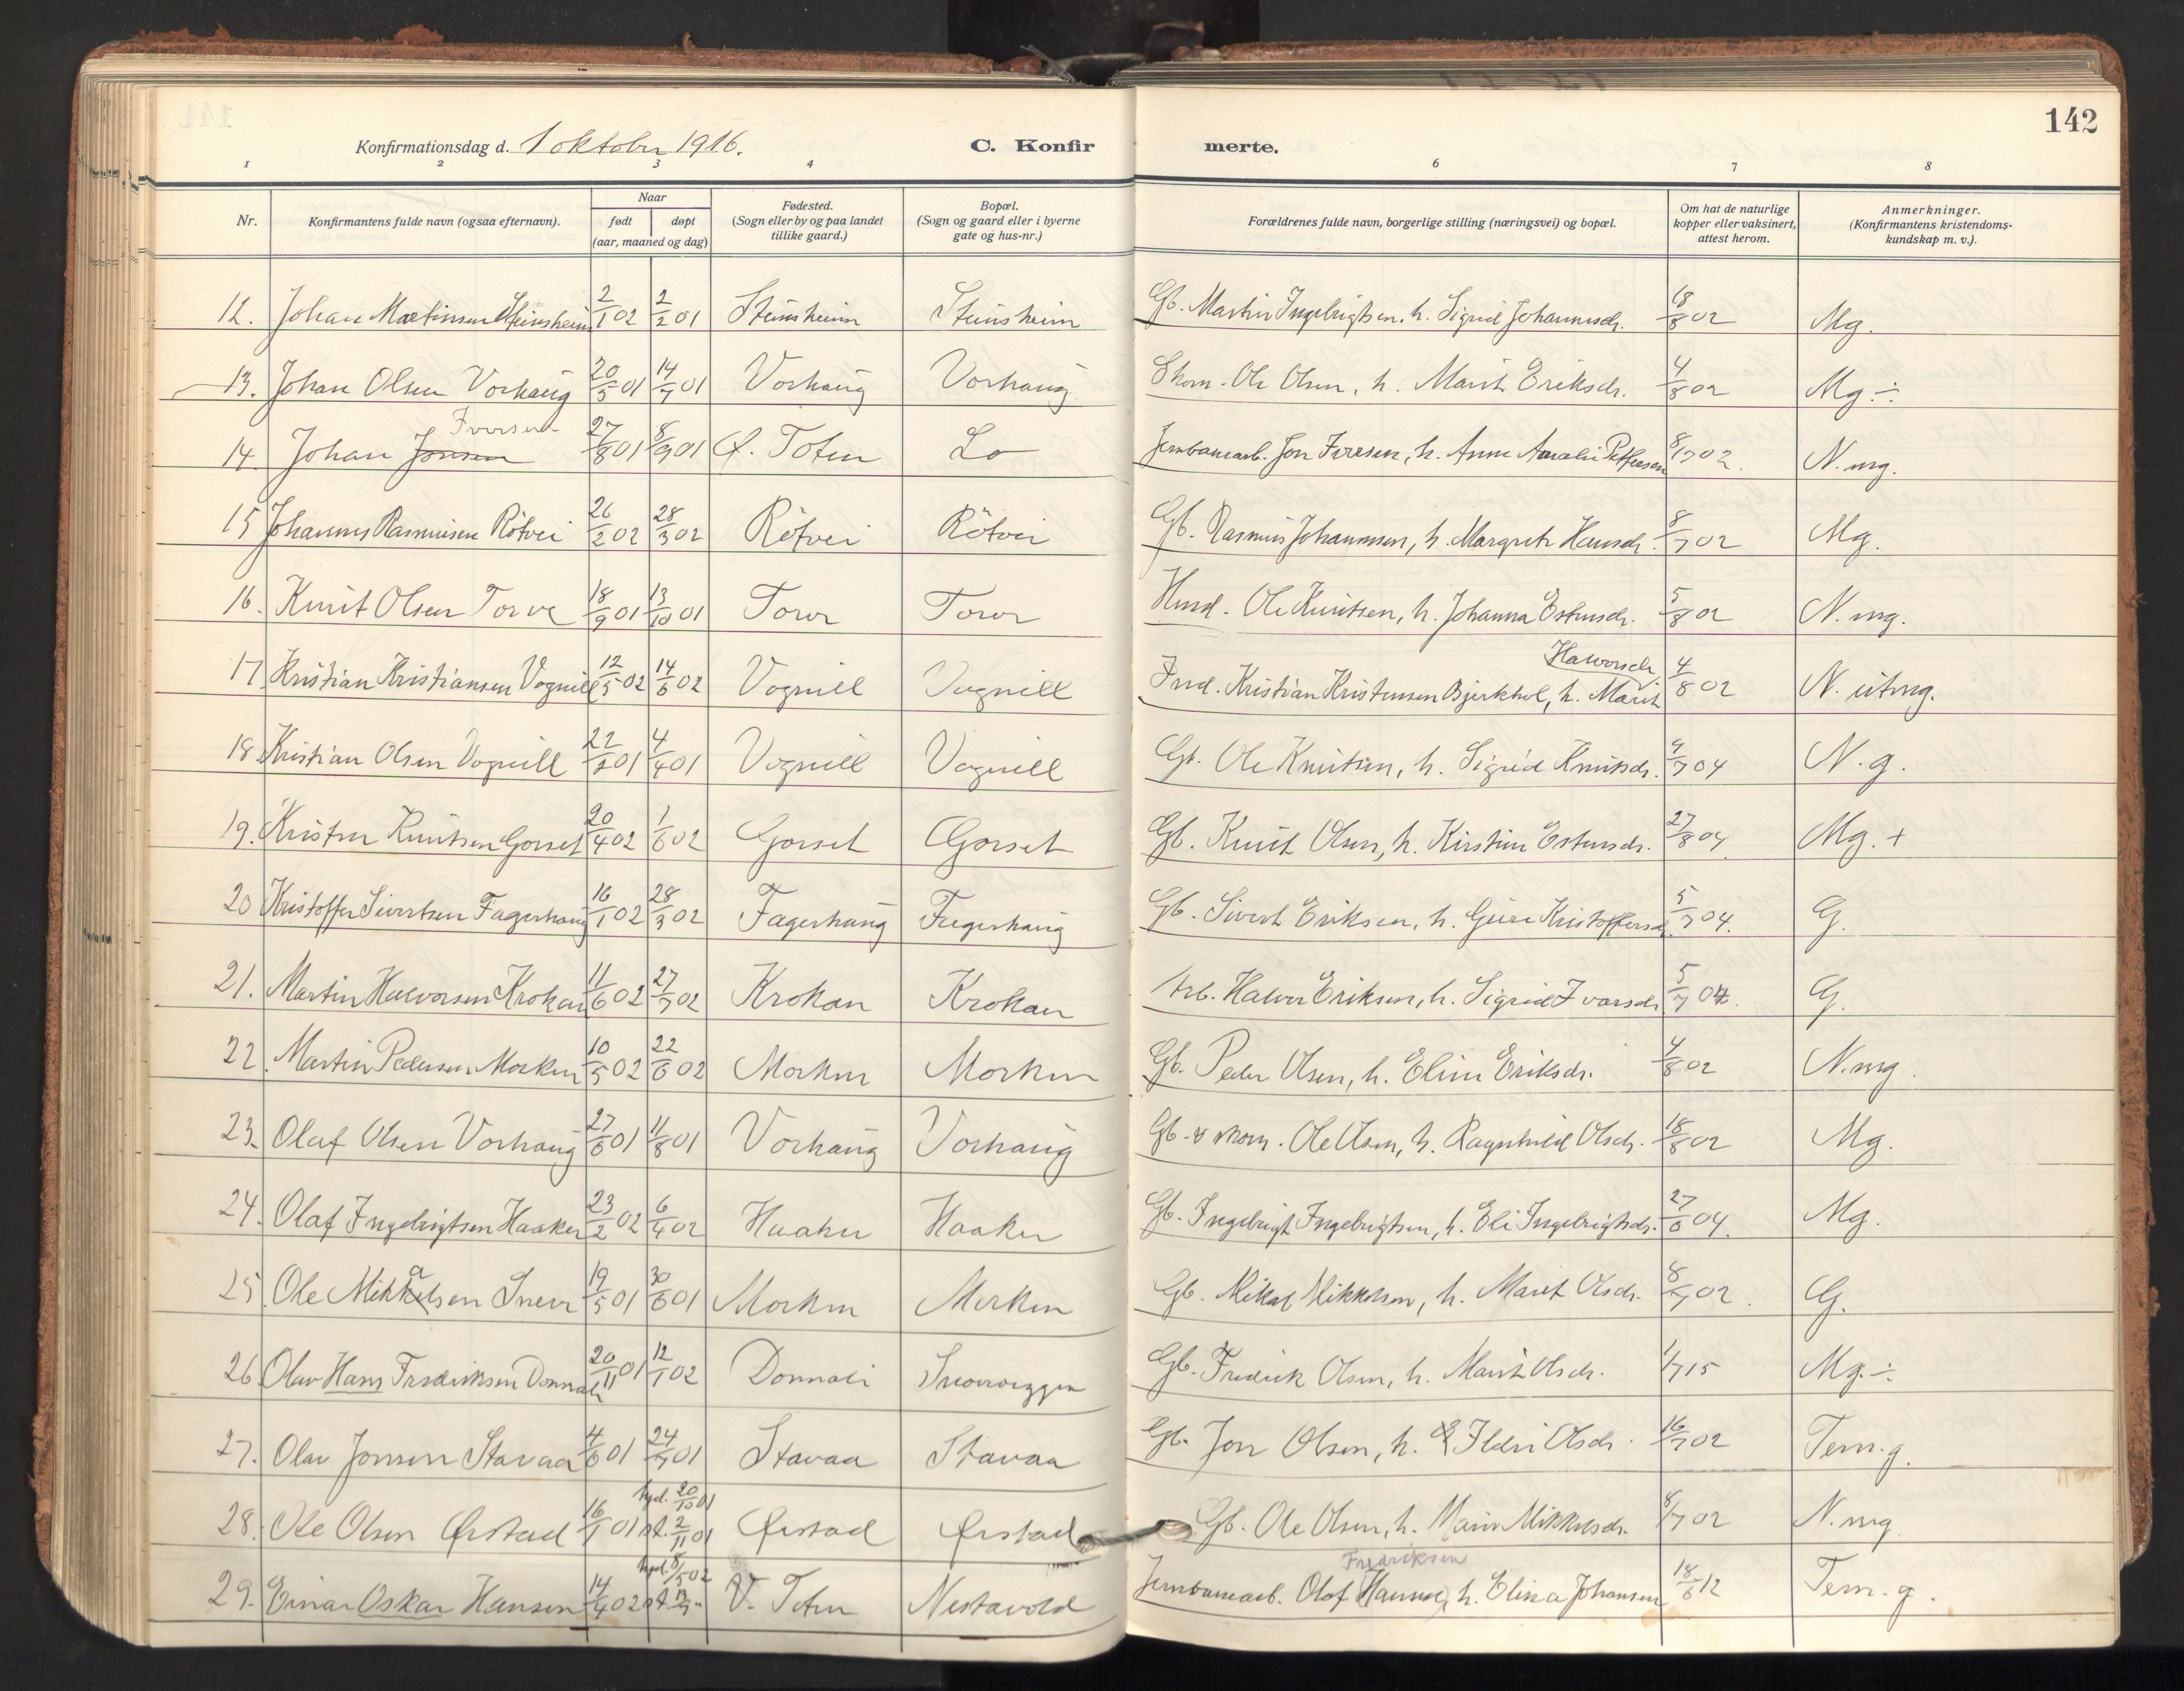 142
Konfirmationsdag d. 1 oktober 1916. C. Konfirmerte.
1 2 3 4 6 7 8
Nr. Konfirmantens fulde navn (ogsaa efternavn). Naar født døpt (aar, maaned og dag) Fødested. (Sogn eller by og paa landet tillike gaard.) Bopæl. (Sogn og gaard eller i byerne gate og hus-nr.) Forældrenes fulde navn, borgerlige stilling (næringsvei) og bopæl. Om hat de naturlige kopper eller vaksinert, attest herom. Anmerkninger. (Konfirmantens kristendomskundskap m. v.).
12. Johan Martinsen Steinsheim 2/1 02 2/2 01 Steinsheim Steinsheim Gb. Martin Ingebrigtsen, h. Sigrid Johannesdr. 18/8 02 Mg.
13. Johan Olsen Vorhaug 20/5 01 14/7 01 Vorhaug Vorhaug Skom. Ole Olsen, h. Marit Eriksdr. 4/8 02 Mg. ÷
Iversen
14. Johan Jonsen 27/8 01 8/9 01 Ø. Toten Lo Jernbanearb. Jon Iversen, h. Anne Amalie Pettersen 8/7 02. N. mg.
15 Johannes Rasmusen Rötvei 26/2 02 28/3 02 Rötvei Rötvei Gb. Rasmus Johannesen, h. Margrete Hansdr. 8/7 02 Mg.
16. Knut Olsen Torve 18/9 01 13/10 01 Torve Torve Husd. Ole Knutsen, h. Johanna Estensdr. 5/8 02 N. mg.
Halvorsdr
17. Kristian Kristiansen Vognill 12/5 02 14/6 02 Vognill Vognill Ind. Kristian Kristensen Bjerkhol, h. Marit 4/8 02 N. utmg.
18. Kristian Olsen Vognill 22/2 01 4/4 01 Vognill Vognill Gb. Ole Knutsen, h. Sigrid Knutsdr. 4/7 04 N. g.
19. Kristen Knutsen Gorset 20/4 02 1/6 02 Gorset Gorset Gb. Knut Olsen, h. Kirstine Estensdr. 27/8 04. Mg. +
20 Kristoffer Sivertsen Fagerhaug 16/1 02 28/3 02 Fagerhaug Fagerhaug Gb. Sivert Eriksen, h. Guri Kristoffersd. 5/7 04. G.
21. Martin Halvorsen Krokan 11/6 02 27/7 02 Krokan Krokan Arb. Halvor Eriksen, h. Sigrid Ivarsdr 5/7 04. G.
22. Martin Pedersen Morken 10/5 02 22/6 02 Morken Morken Gb. Peder Olsen, h. Eline Eriksdr. 4/8 02 N. mg.
23. Olaf Olsen Vorhaug 27/6 01 11/8 01 Vorhaug Vorhaug Gb. & skom. Ole Olsen, h. Ragnhild Olsdr. 18/8 02 Mg.
24. Olaf Ingebrigtsen Haaker 23/2 02 6/4 02 Haaker Haaker Gb. Ingebrigt Ingebrigtsen, h. Eli Ingebrigtsdr. 27/8 04. Mg.
25. Ole Mikkalsen Sneve 19/5 01 30/6 01 Morken Morken Gb. Mikal Mikkelsen, h. Marit Olsdr. 8/7 02. G.
26. Olav Hans Fredriksen Donnali 20/11 01 12/1 02 Donnali Gb. Fredrik Olsen, h. Marit Olsdr. 1/7 15 Mg. ÷
27. Olav Jonsen Stavaa 4/6 01 24/7 01 Stavaa Stavaa Gb. Jon Olsen, h. Ildri Olsdr. 16/7 02 Tem. g.
28. Ole Olsen Ørstad 16/1 01 hjd. 20/10 01 st. 2/11 01 Ørstad Ørstad Gb. Ole Olsen, h. Marit Mikkelsdr. 8/7 02 N. mg
Fredriksen
29. Einar Oskar Hansen 14/4 02 hjd. 8/5 02 V. Toten Nestavold Jernbanearb. Olaf Hansen, h. Elina Johansen 18/6 12 Tem. g.